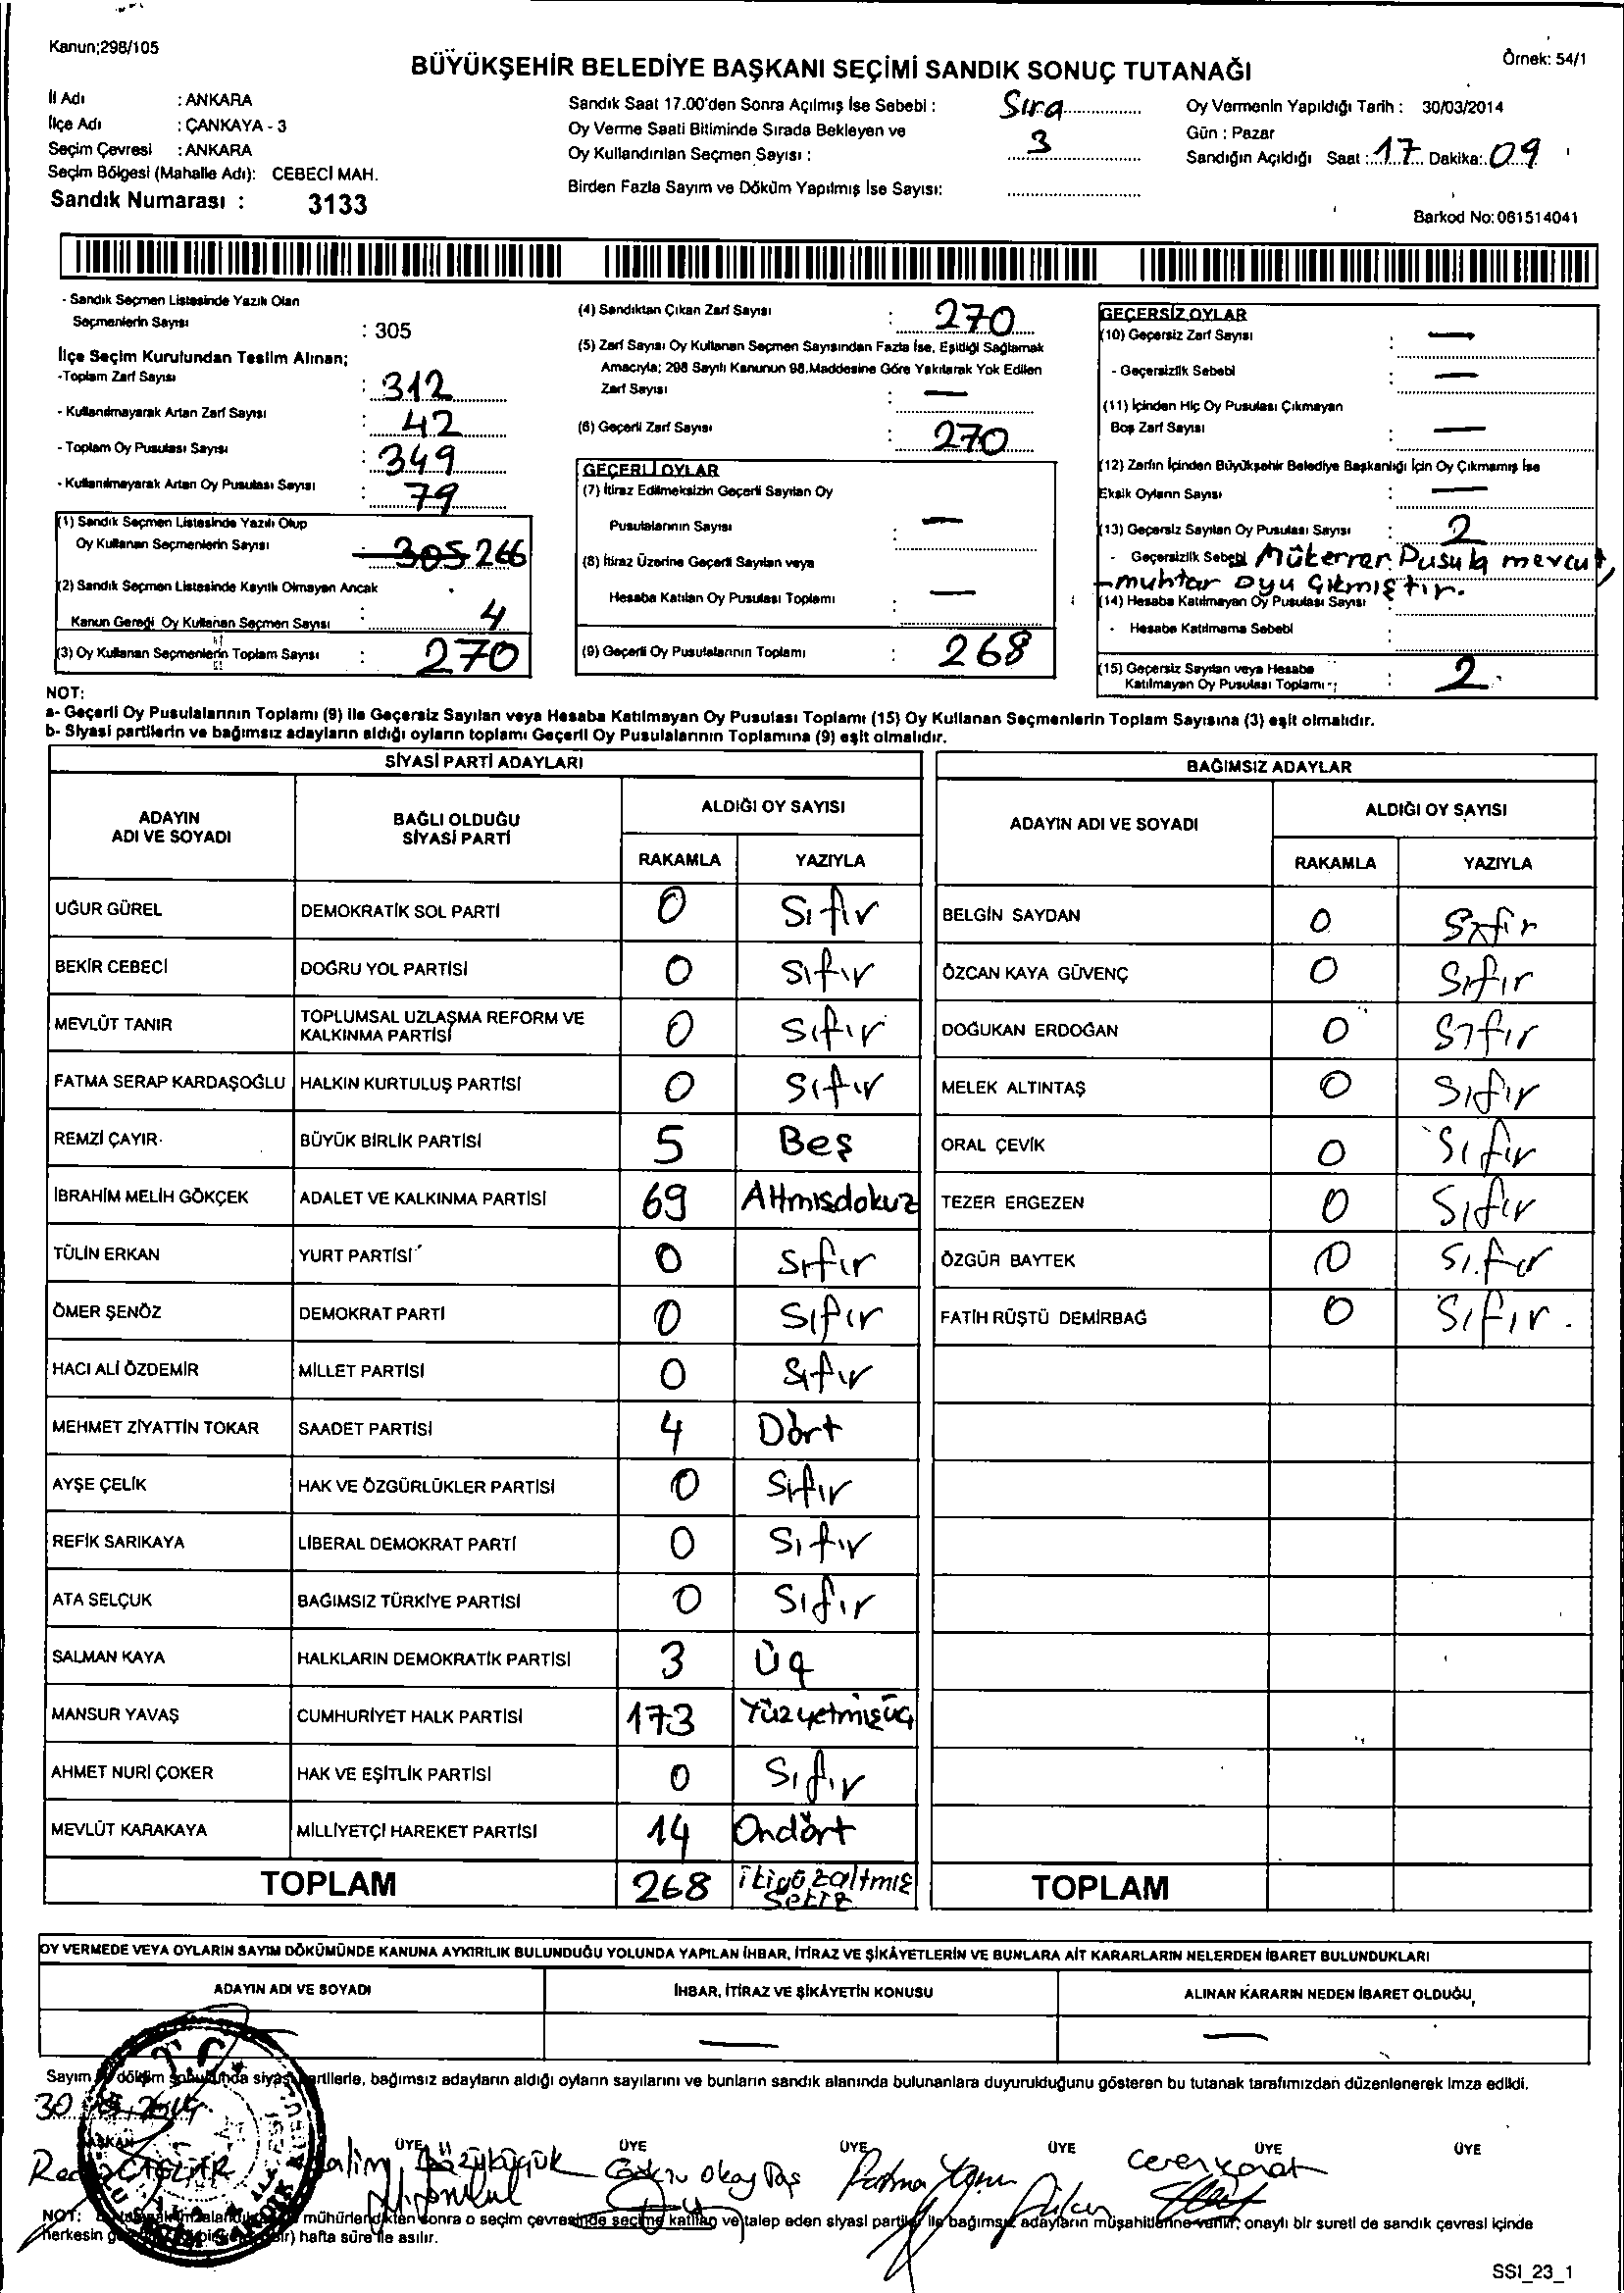 Kanun;298/105
BÜYÜKŞEHİR BELEDİYE BAŞKANI SEÇİMİ SANDIK SONUÇ TUTANAĞI
Örnek: 54/1
İl Adı : ANKARA
İlçe Adı : ÇANKAYA - 3
Seçim Çevresi : ANKARA
Seçim Bölgesi (Mahalle Adı): CEBECİ MAH.
Sandık Numarası : 3133
Sandık Saat 17.00'den Sonra Açılmış İse Sebebi : Sıra
Oy Verme Saati Bitiminde Sırada Bekleyen ve
Oy Kullandırılan Seçmen Sayısı : 3
Birden Fazla Sayım ve Döküm Yapılmış İse Sayısı:
Oy Vermenin Yapıldığı Tarih : 30/03/2014
Gün : Pazar
Sandığın Açıldığı Saat : 17 Dakika: 09
Barkod No: 061514041
- Sandık Seçmen Listesinde Yazılı Olan
Seçmenlerin Sayısı : 305
İlçe Seçim Kurulundan Teslim Alınan;
-Toplam Zarf Sayısı : 312
- Kullanılmayarak Artan Zarf Sayısı : 42
- Toplam Oy Pusulası Sayısı : 349
- Kullanılmayarak Artan Oy Pusulası Sayısı : 79
(1) Sandık Seçmen Listesinde Yazılı Olup
Oy Kullanan Seçmenlerin Sayısı : 305 266
(2) Sandık Seçmen Listesinde Kayıtlı Olmayan Ancak
Kanun Gereği Oy Kullanan Seçmen Sayısı : 4
(3) Oy Kullanan Seçmenlerin Toplam Sayısı : 270
(4) Sandıktan Çıkan Zarf Sayısı : 270
(5) Zarf Sayısı Oy Kullanan Seçmen Sayısından Fazla İse, Eşitliği Sağlamak
Amacıyla; 298 Sayılı Kanunun 98.Maddesine Göre Yakılarak Yok Edilen
Zarf Sayısı : —
(6) Geçerli Zarf Sayısı : 270
GEÇERLİ OYLAR
(7) İtiraz Edilmeksizin Geçerli Sayılan Oy
Pusulalarının Sayısı : —
(8) İtiraz Üzerine Geçerli Sayılan veya
Hesaba Katılan Oy Pusulası Toplamı : —
(9) Geçerli Oy Pusulalarının Toplamı : 268
GEÇERSİZ OYLAR
(10) Geçersiz Zarf Sayısı : —
- Geçersizlik Sebebi : —
(11) İçinden Hiç Oy Pusulası Çıkmayan
Boş Zarf Sayısı : —
(12) Zarfın İçinden Büyükşehir Belediye Başkanlığı İçin Oy Çıkmamış İse
Eksik Oyların Sayısı : —
(13) Geçersiz Sayılan Oy Pusulası Sayısı : 2
- Geçersizlik Sebebi Mükerrer Pusula mevcut,
-muhtar oyu çıkmıştır.
(14) Hesaba Katılmayan Oy Pusulası Sayısı
- Hesaba Katılmama Sebebi :
(15) Geçersiz Sayılan veya Hesaba
Katılmayan Oy Pusulası Toplamı : 2
NOT:
a- Geçerli Oy Pusulalarının Toplamı (9) ile Geçersiz Sayılan veya Hesaba Katılmayan Oy Pusulası Toplamı (15) Oy Kullanan Seçmenlerin Toplam Sayısına (3) eşit olmalıdır.
b- Siyasi partilerin ve bağımsız adayların aldığı oyların toplamı Geçerli Oy Pusulalarının Toplamına (9) eşit olmalıdır.
SİYASİ PARTİ ADAYLARI
ADAYIN ADI VE SOYADI BAĞLI OLDUĞU SİYASİ PARTİ ALDIĞI OY SAYISI
RAKAMLA YAZIYLA
UĞUR GÜREL DEMOKRATİK SOL PARTİ 0 Sıfır
BEKİR CEBECİ DOĞRU YOL PARTİSİ 0 Sıfır
MEVLÜT TANIR TOPLUMSAL UZLAŞMA REFORM VE KALKINMA PARTİSİ 0 Sıfır
FATMA SERAP KARDAŞOĞLU HALKIN KURTULUŞ PARTİSİ 0 Sıfır
REMZİ ÇAYIR BÜYÜK BİRLİK PARTİSİ 5 Beş
İBRAHİM MELİH GÖKÇEK ADALET VE KALKINMA PARTİSİ 69 Altmısdokuz
TÜLİN ERKAN YURT PARTİSİ 0 Sıfır
ÖMER ŞENÖZ DEMOKRAT PARTİ 0 Sıfır
HACI ALİ ÖZDEMİR MİLLET PARTİSİ 0 Sıfır
MEHMET ZİYATTİN TOKAR SAADET PARTİSİ 4 Dört
AYŞE ÇELİK HAK VE ÖZGÜRLÜKLER PARTİSİ 0 Sıfır
REFİK SARIKAYA LİBERAL DEMOKRAT PARTİ 0 Sıfır
ATA SELÇUK BAĞIMSIZ TÜRKİYE PARTİSİ 0 Sıfır
SALMAN KAYA HALKLARIN DEMOKRATİK PARTİSİ 3 Üç
MANSUR YAVAŞ CUMHURİYET HALK PARTİSİ 173 Yüzyetmişüç
AHMET NURİ ÇOKER HAK VE EŞİTLİK PARTİSİ 0 Sıfır
MEVLÜT KARAKAYA MİLLİYETÇİ HAREKET PARTİSİ 14 Ondört
TOPLAM 268 ikiyüzaltmış sekiz
BAĞIMSIZ ADAYLAR
ADAYIN ADI VE SOYADI ALDIĞI OY SAYISI
RAKAMLA YAZIYLA
BELGİN SAYDAN 0 Sıfır
ÖZCAN KAYA GÜVENÇ 0 Sıfır
DOĞUKAN ERDOĞAN 0 Sıfır
MELEK ALTINTAŞ 0 Sıfır
ORAL ÇEVİK 0 Sıfır
TEZER ERGEZEN 0 Sıfır
ÖZGÜR BAYTEK 0 Sıfır
FATİH RÜŞTÜ DEMİRBAĞ 0 Sıfır.
TOPLAM
OY VERMEDE VEYA OYLARIN SAYIM DÖKÜMÜNDE KANUNA AYKIRILIK BULUNDUĞU YOLUNDA YAPILAN İHBAR, İTİRAZ VE ŞİKÂYETLERİN VE BUNLARA AİT KARARLARIN NELERDEN İBARET BULUNDUKLARI
ADAYIN ADI VE SOYADI İHBAR, İTİRAZ VE ŞİKÂYETİN KONUSU ALINAN KARARIN NEDEN İBARET OLDUĞU
— —
Sayım döküm sonucunda siyasi partilerle, bağımsız adayların aldığı oyların sayılarını ve bunların sandık alanında bulunanlara duyurulduğunu gösteren bu tutanak tarafımızdan düzenlenerek imza edildi.
30
BAŞKAN ÜYE ÜYE ÜYE ÜYE ÜYE ÜYE
Okay Taş Fatma Ceren
NOT: mühürlendikten sonra o seçim çevresinde seçime katılan ve talep eden siyasi partiler ile bağımsız adayların müşahitlerine verilir; onaylı bir sureti de sandık çevresi içinde
herkesin hafta süre ile asılır.
SSI_23_1